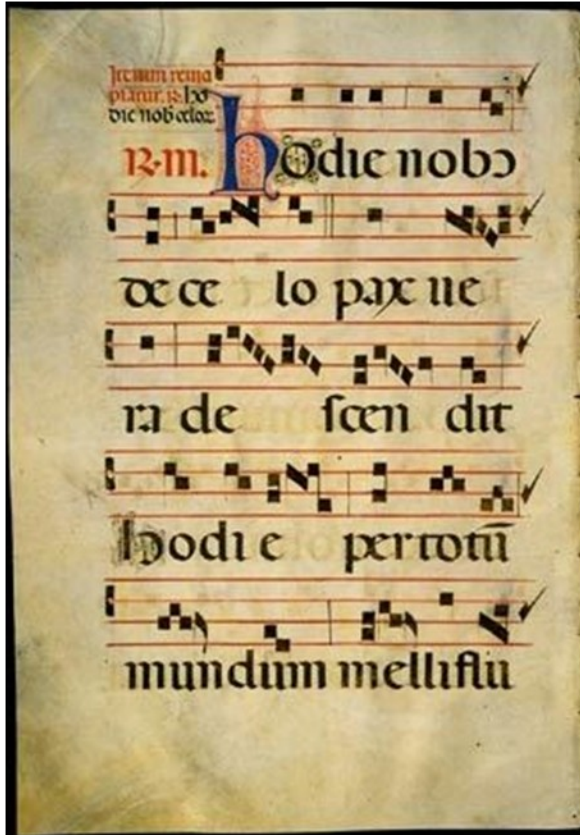 Iterum reina
piatur. R. ho
die nob celor
R. III. hodie nobɔ
de ce lo pax ue
ra de scen dit
hodi e per totū
mundum melliflu